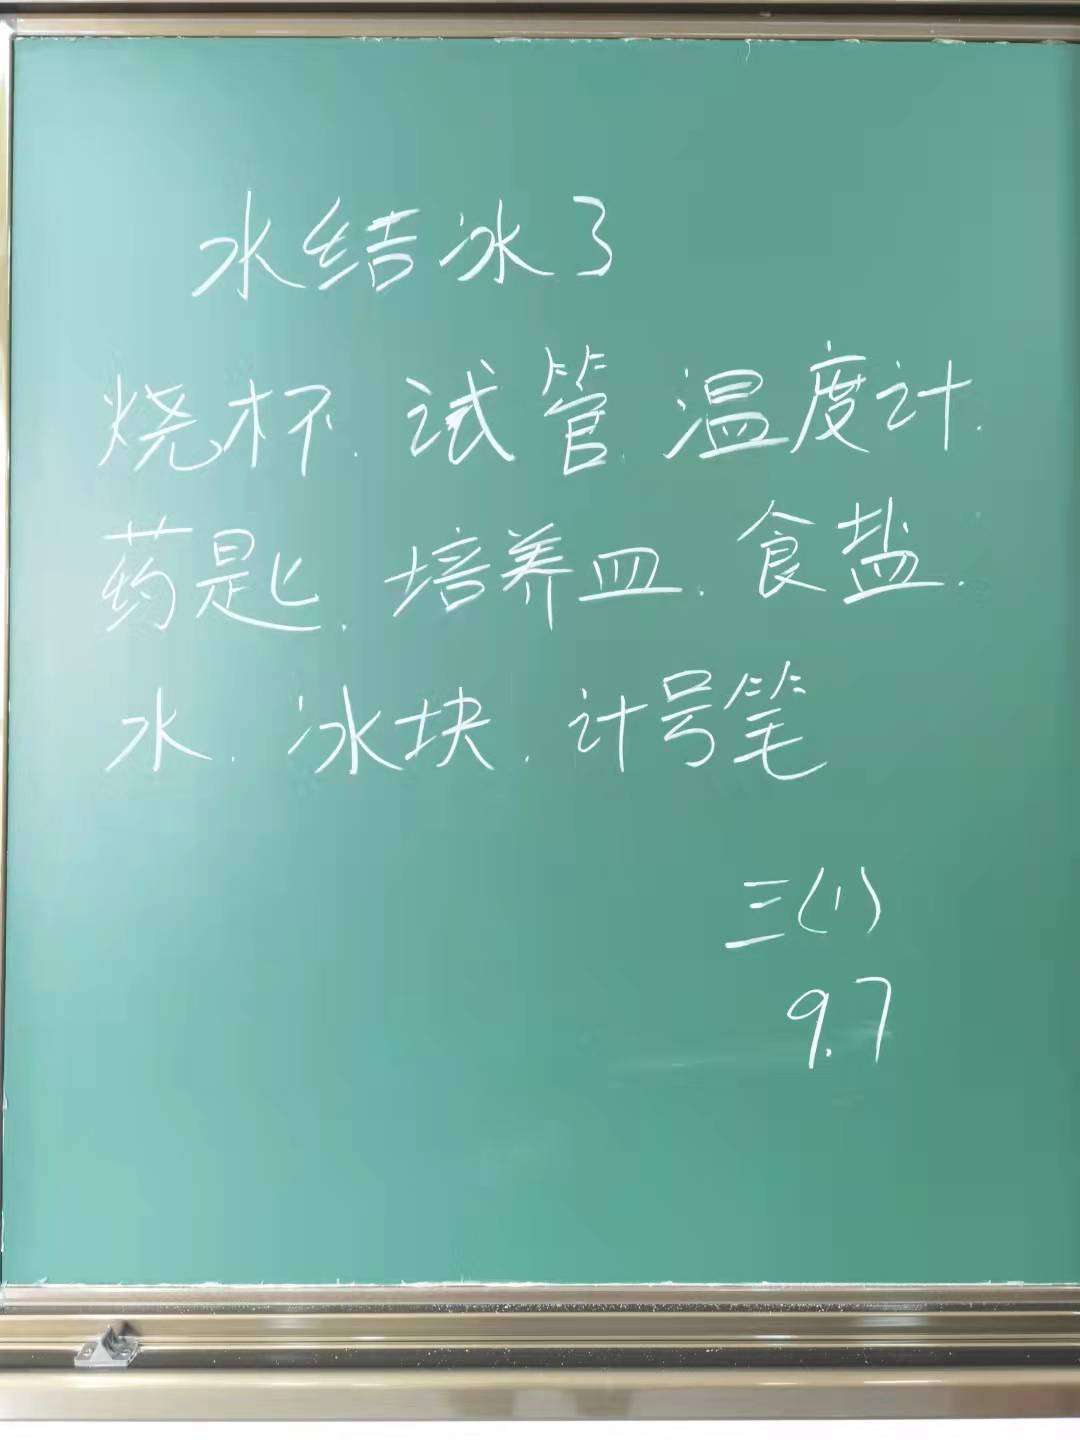 水结冰了
烧杯.试管.温度计.
药匙.培养皿.食盐.
水.冰块.计号笔
三(1)
9.7